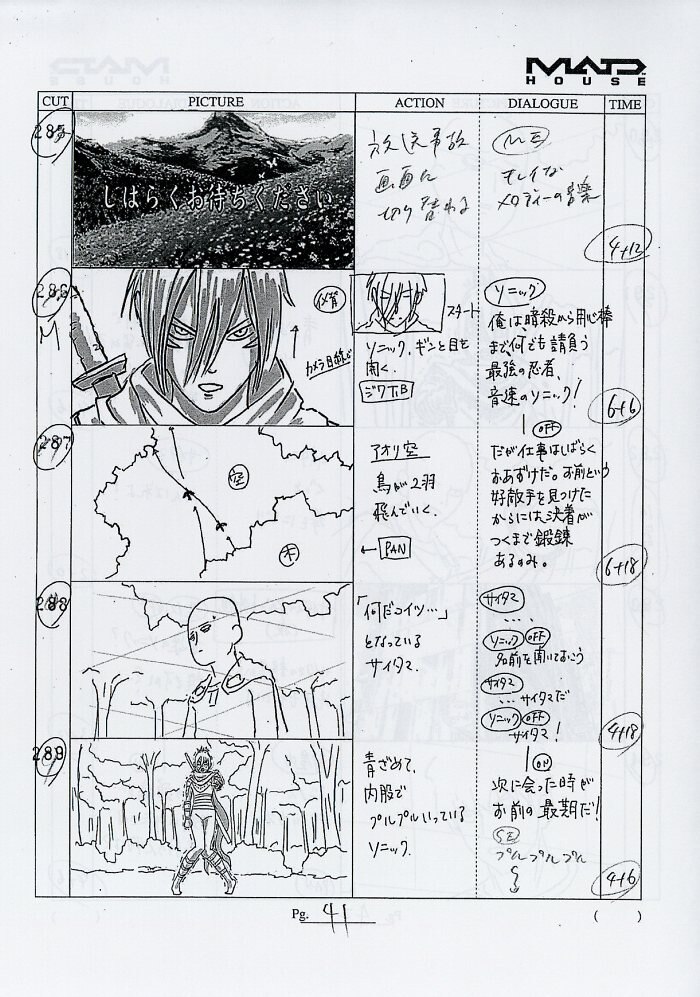 MADHOUSE
CUT PICTURE ACTION DIALOGUE TIME
285
しばらくお待ちください
放送事故
画面に
切り替わる
ME
キレイな
メロディーの音楽
4+12
286
M
カメラ目線で
スタート
ソニック、ギンと目を
開く。
ジワTB
ソニック
俺は暗殺から用心棒
まで何でも請負う
最強の忍者、
音速のソニック!
6+6
287
空
木
アオリ空
鳥が2羽
飛んでいく。
← PAN
OFF
だが仕事はしばらく
おあずけだ。お前という
好敵手を見つけた
からには決着が
つくまで鍛錬
あるのみ。
6+18
288
「何だコイツ…」
となっている
サイタマ.
サイタマ
....
ソニック OFF
名前を聞いておこう
サイタマ
…サイタマだ
ソニック OFF
サイタマ!
4+18
289
青ざめて、
内股で
プルプルいっている
ソニック.
ON
次に会った時が
お前の最期だ!
SE
プルプルプル
4+6
Pg. 41 ( )